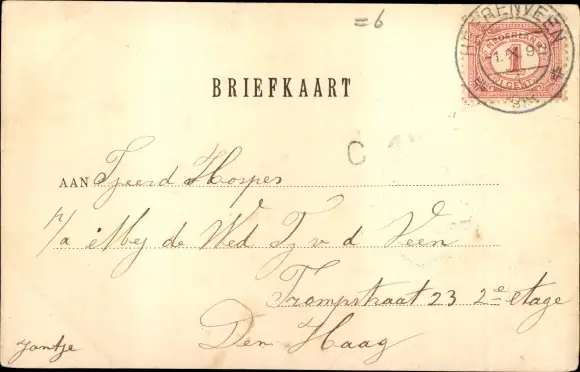 =6
HEERENVEEN
NEDERLAND
1
CENT
BRIEFKAART
C
AAN Tjeerd Hospes
p/a Mej de Wed Tj v d Veen
Trompstraat 23 2e etage
Den Haag
Jantje